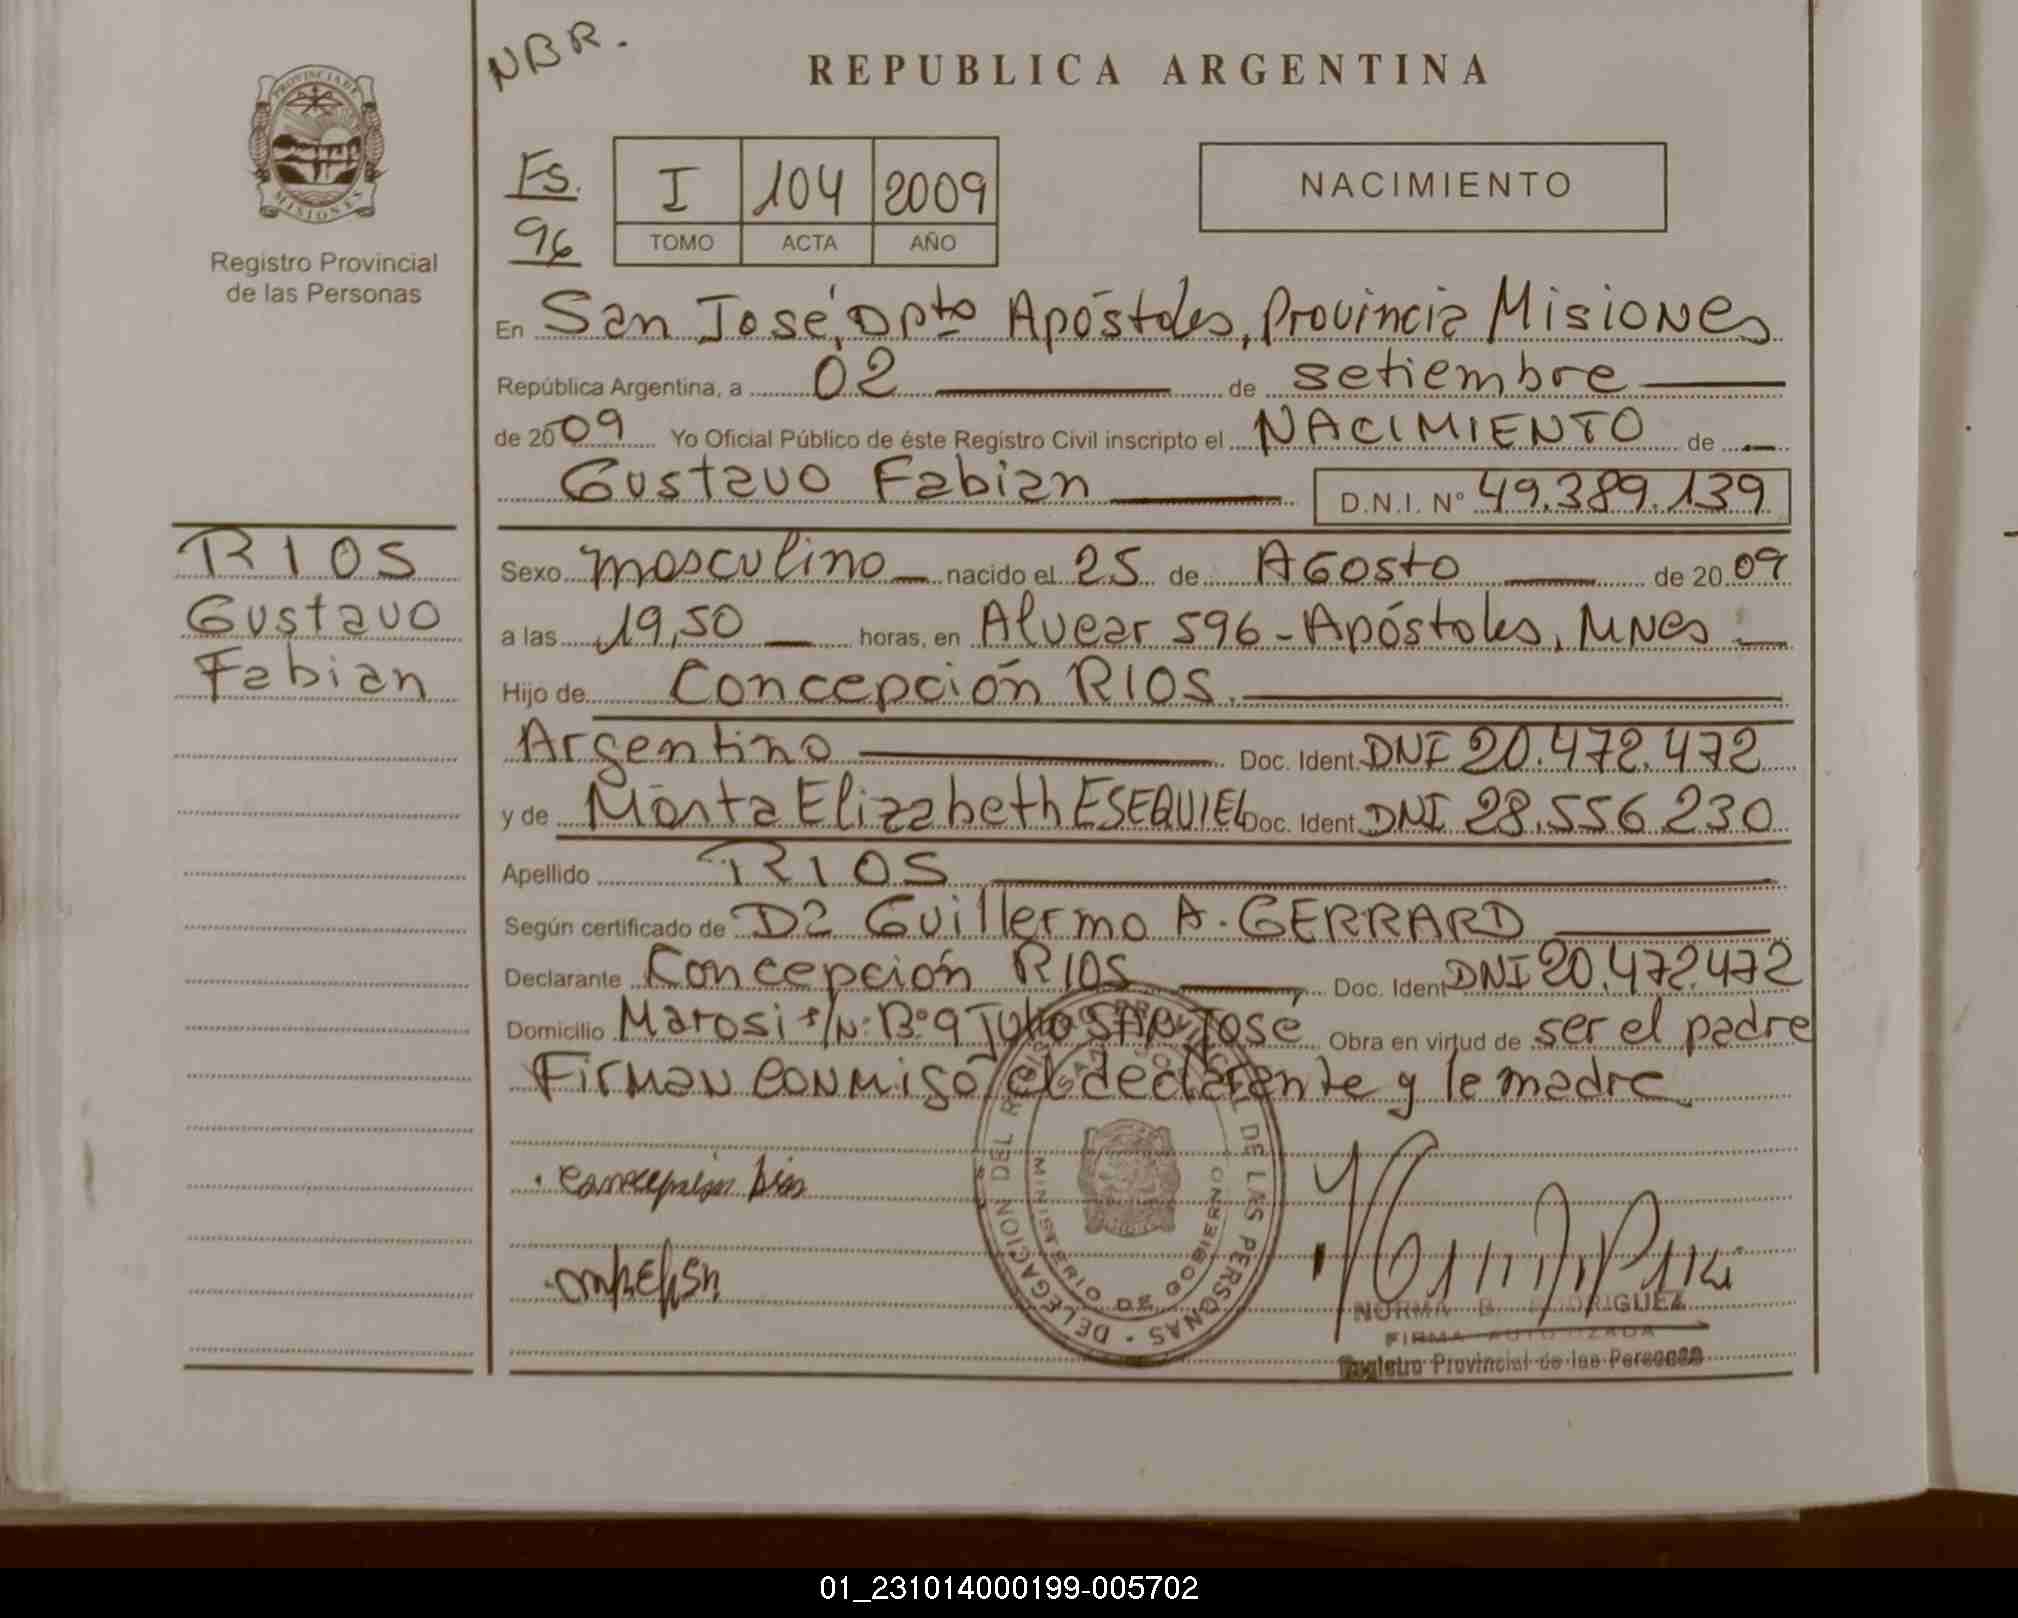 NBR.
REPUBLICA ARGENTINA
PROVINCIA DE
MISIONES
Registro Provincial
de las Personas
Fs.
96
I 104 2009
TOMO ACTA AÑO
NACIMIENTO
En San José, Dpto Apóstoles, Provincia Misiones
República Argentina, a 02 de setiembre
de 2009 Yo Oficial Público de éste Registro Civil inscripto el NACIMIENTO de
Gustavo Fabian D.N.I. Nº 49.389.139
RIOS
Gustavo
Fabian
Sexo masculino nacido el 25 de AGosto de 2009
a las 19,50 horas, en Alvear 596 - Apóstoles, MNes
Hijo de Concepción RIOS.
Argentino Doc. Ident. DNI 20.472.472
y de Marta Elizabeth ESEQUIEL Doc. Ident. DNI 28.556.230
Apellido RIOS
Según certificado de Guillermo A. GERRARD
Declarante Concepción RIOS Doc. Ident DNI 20.472.472
Domicilio Marosi s/Nº Bº 9 Julio SAN José Obra en virtud de ser el padre
Firman conmigo el declarante y la madre
DELEGACION DEL REGISTRO PROVINCIAL DE LAS PERSONAS
SAN JOSE
MINISTERIO DE GOBIERNO
Concepción Rios
NORMA B. RODRIGUEZ
FIRMA AUTORIZADA
Registro Provincial de las Personas
01_231014000199-005702